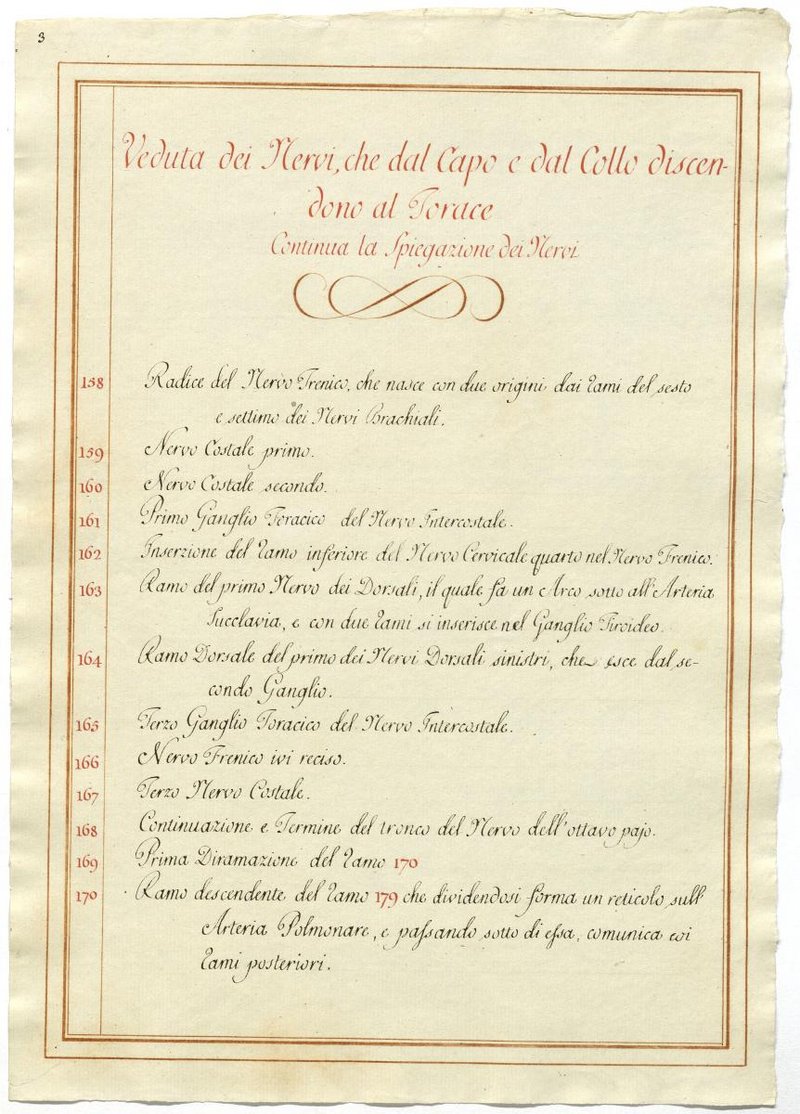 3
Veduta dei Nervi, che dal Capo e dal Collo discen-
dono al Torace
Continua la Spiegazione dei Nervi
158 Radice del Nervo Frenico, che nasce con due origini dai rami del sesto
e settimo dei Nervi Brachiali.
159 Nervo Costale primo.
160 Nervo Costale secondo.
161 Primo Ganglio Toracico del Nervo Intercostale.
162 Inserzione del ramo inferiore del Nervo Cervicale quarto nel Nervo Frenico.
163 Ramo del primo Nervo dei Dorsali, il quale fa un Arco sotto all'Arteria
Succlavia, e con due rami si inserisce nel Ganglio Tiroideo.
164 Ramo Dorsale del primo dei Nervi Dorsali sinistri, che esce dal se-
condo Ganglio.
165 Terzo Ganglio Toracico del Nervo Intercostale.
166 Nervo Frenico ivi reciso.
167 Terzo Nervo Costale.
168 Continuazione e Termine del tronco del Nervo dell'ottavo pajo.
169 Prima Diramazione del ramo 170
170 Ramo descendente del ramo 179 che dividendosi forma un reticolo sull'
Arteria Polmonare, e passando sotto di essa, comunica coi
rami posteriori.